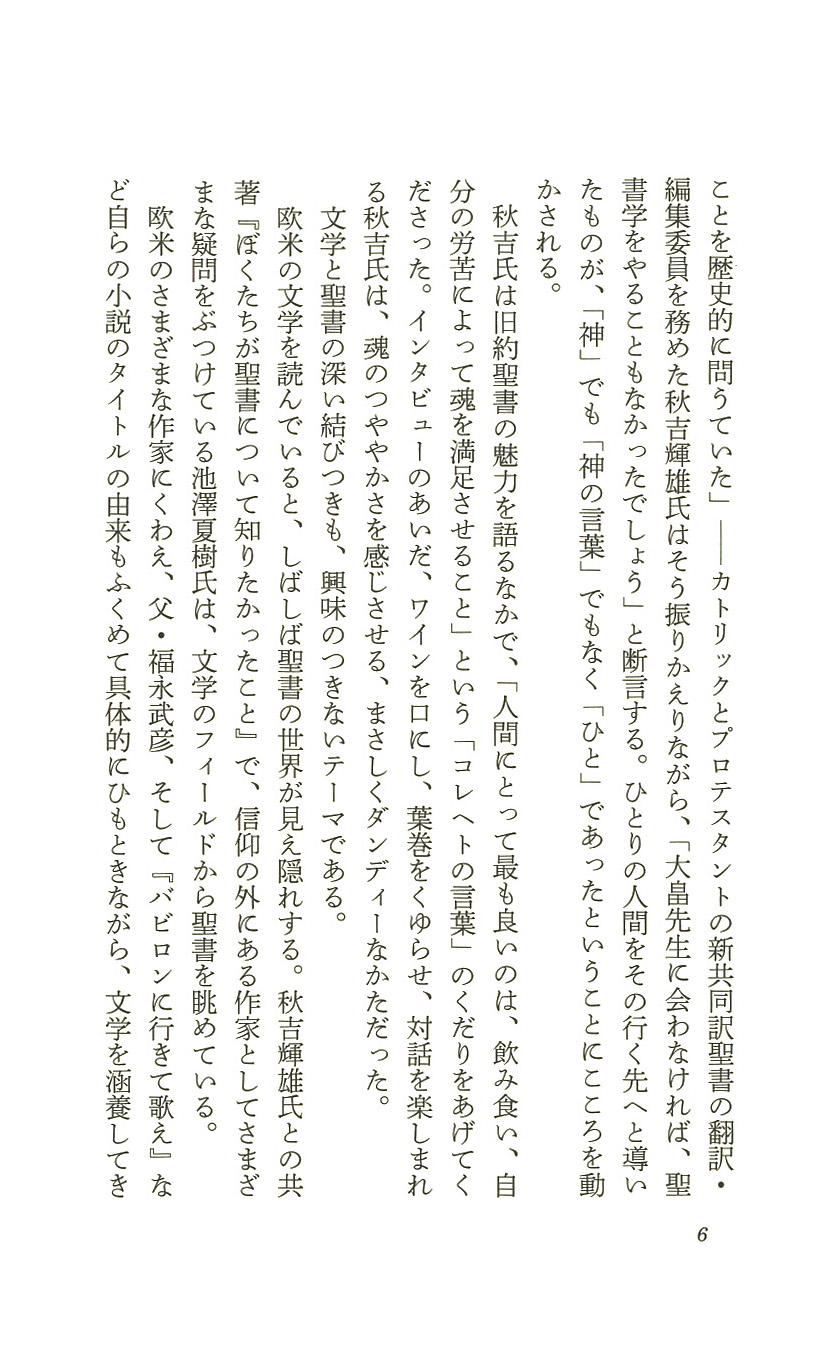 ことを歴史的に問うていた」――カトリックとプロテスタントの新共同訳聖書の翻訳・
編集委員を務めた秋吉輝雄氏はそう振りかえりながら、「大畠先生に会わなければ、聖
書学をやることもなかったでしょう」と断言する。ひとりの人間をその行く先へと導い
たものが、「神」でも「神の言葉」でもなく「ひと」であったということにこころを動
かされる。
秋吉氏は旧約聖書の魅力を語るなかで、「人間にとって最も良いのは、飲み食い、自
分の労苦によって魂を満足させること」という「コレヘトの言葉」のくだりをあげてく
ださった。インタビューのあいだ、ワインを口にし、葉巻をくゆらせ、対話を楽しまれ
る秋吉氏は、魂のつややかさを感じさせる、まさしくダンディーなかただった。
文学と聖書の深い結びつきも、興味のつきないテーマである。
欧米の文学を読んでいると、しばしば聖書の世界が見え隠れする。秋吉輝雄氏との共
著『ぼくたちが聖書について知りたかったこと』で、信仰の外にある作家としてさまざ
まな疑問をぶつけている池澤夏樹氏は、文学のフィールドから聖書を眺めている。
欧米のさまざまな作家にくわえ、父・福永武彦、そして『バビロンに行きて歌え』な
ど自らの小説のタイトルの由来もふくめて具体的にひもときながら、文学を涵養してき
6